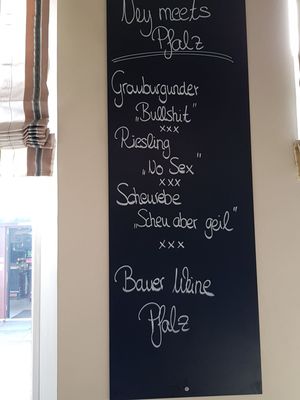 Ney meets
Pfalz
Grauburgunder
„Bullshit"
xxx
Riesling
„No Sex"
xxx
Scheurebe
„Scheu aber geil"
xxx
Bauer Weine
Pfalz